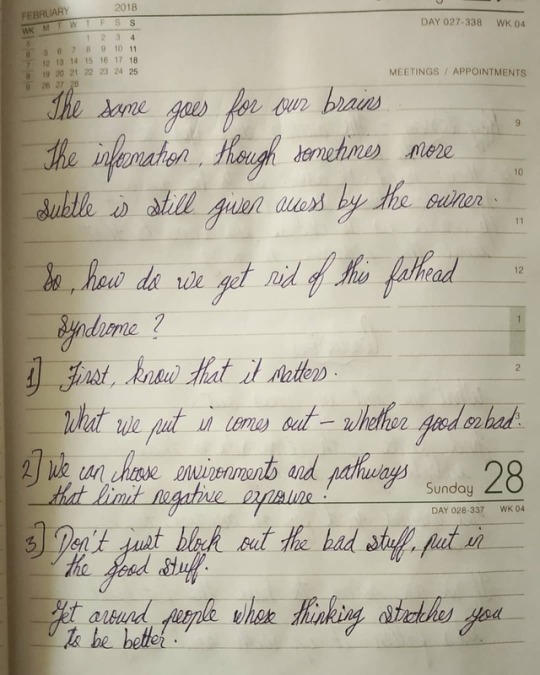 FEBRUARY 2018
WK M T W T F S S
5 1 2 3 4
6 5 6 7 8 9 10 11
7 12 13 14 15 16 17 18
8 19 20 21 22 23 24 25
9 26 27 28
DAY 027-338 WK 04
MEETINGS / APPOINTMENTS
The same goes for our brains
9
The information, though sometimes more
10
subtle is still given acess by the owner.
11
So, how do we get rid of this fathead
12
Syndrome?
1
1] First, know that it matters.
2
What we put in comes out – whether good or bad.
3
2] We can choose environments and pathways
that limit negative exposure.
Sunday 28
DAY 028-337 WK 04
3] Don't just block out the bad stuff, put in
the good stuff.
Get around people whose thinking stretches you
to be better.